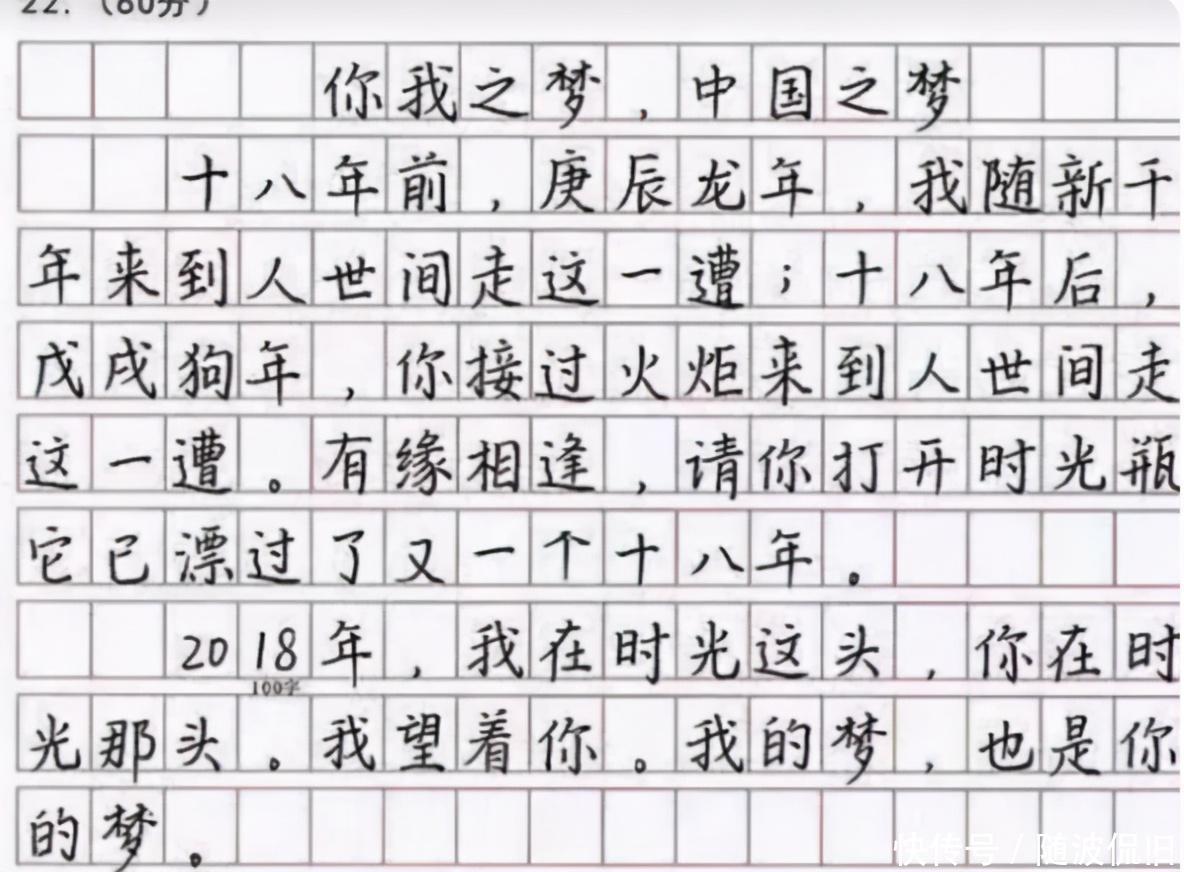 22.（60分）
你我之梦，中国之梦
十八年前，庚辰龙年，我随新千
年来到人世间走这一遭；十八年后，
戊戌狗年，你接过火炬来到人世间走
这一遭。有缘相逢，请你打开时光瓶
它已漂过了又一个十八年。
2018年，我在时光这头，你在时
100字
光那头。我望着你。我的梦，也是你
的梦。
快传号/随波侃旧